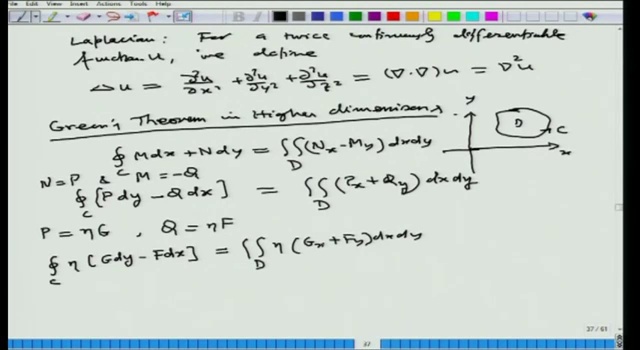 File Edit View Insert Actions Tools Help
Laplacian: For a twice continuously differentiable
function u, we define
Δu = ∂²u/∂x² + ∂²u/∂y² + ∂²u/∂z² = (∇·∇)u = ∇²u
Green's Theorem in Higher dimensions
∮_C Mdx + Ndy = ∬_D (N_x - M_y) dxdy
y
D
C
x
N = P & M = -Q
∮_C [Pdy - Qdx] = ∬_D (P_x + Q_y) dxdy
P = ηG, Q = ηF
∮_C η[Gdy - Fdx] = ∬_D η(G_x + F_y) dxdy
37 / 61
37